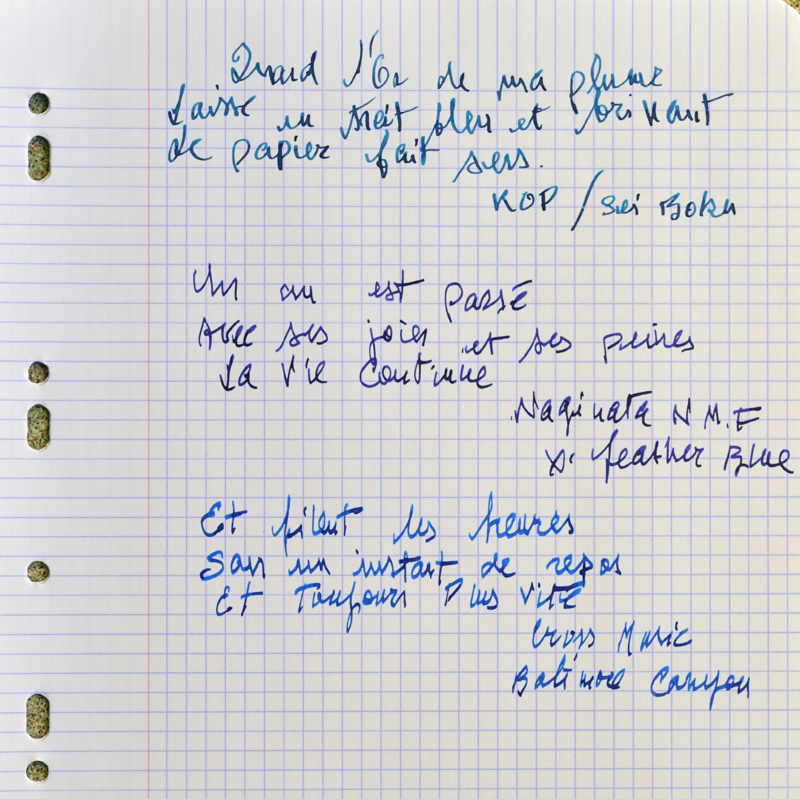 Quand l'Or de ma plume
Laisse un trait bleu et brillant
Le papier fait sens.
KOP / Sei Boku
Un an est passé
Avec ses joies et ses peines
La vie continue
Naginata N M.F
feather Blue
Et filent les heures
San un instant de repos
Et Toujours Plus vite
Cross Music
Baltimore Canyon